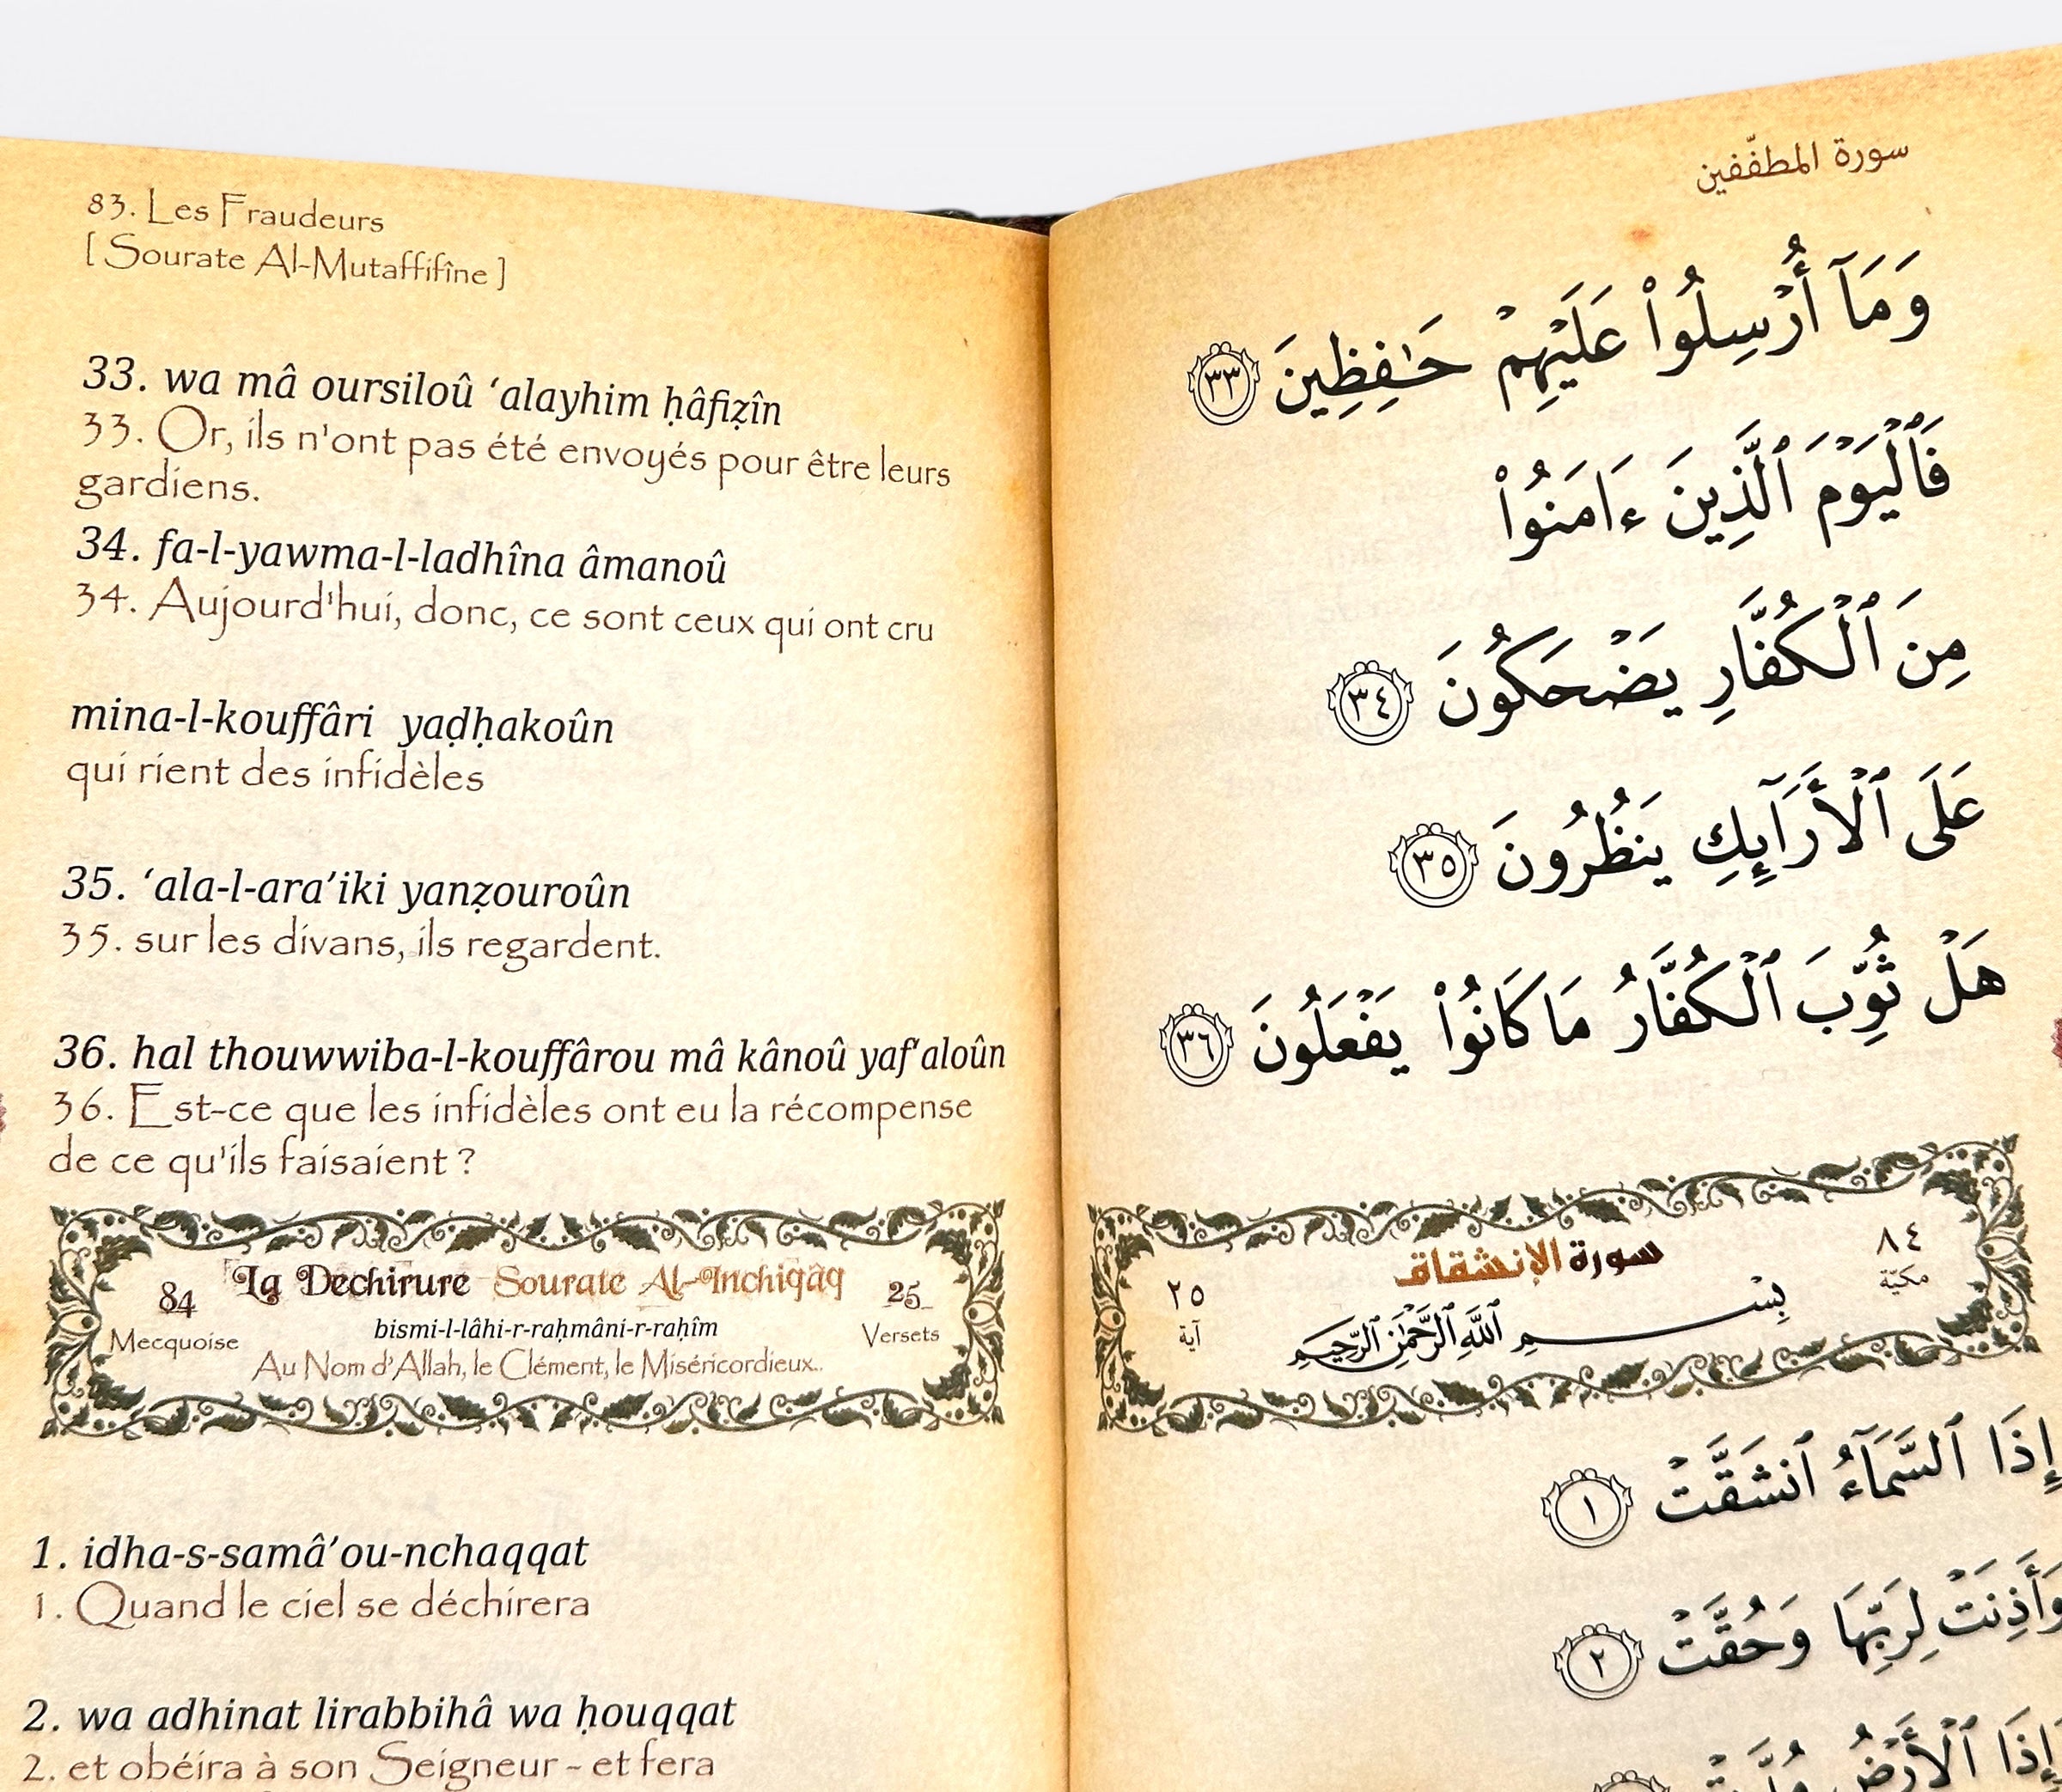 83. Les Fraudeurs
[ Sourate Al-Mutaffifîne ]
33. wa mâ oursiloû ‘alayhim ḥâfiẓîn
33. Or, ils n'ont pas été envoyés pour être leurs
gardiens.
34. fa-l-yawma-l-ladhîna âmanoû
34. Aujourd'hui, donc, ce sont ceux qui ont cru
mina-l-kouffâri yaḍḥakoûn
qui rient des infidèles
35. ‘ala-l-ara’iki yanẓouroûn
35. sur les divans, ils regardent.
36. hal thouwwiba-l-kouffârou mâ kânoû yaf‘aloûn
36. Est-ce que les infidèles ont eu la récompense
de ce qu'ils faisaient ?
84 La Dechirure Sourate Al-Inchiqâq 25
Mecquoise bismi-l-lâhi-r-raḥmâni-r-raḥîm Versets
Au Nom d'Allah, le Clément, le Miséricordieux..
1. idha-s-samâ’ou-nchaqqat
1. Quand le ciel se déchirera
2. wa adhinat lirabbihâ wa ḥouqqat
2. et obéira à son Seigneur - et fera
سورة المطفّفين
وَمَآ أُرْسِلُوا۟ عَلَيْهِمْ حَـٰفِظِينَ ٣٣
فَٱلْيَوْمَ ٱلَّذِينَ ءَامَنُوا۟
مِنَ ٱلْكُفَّارِ يَضْحَكُونَ ٣٤
عَلَى ٱلْأَرَآئِكِ يَنظُرُونَ ٣٥
هَلْ ثُوِّبَ ٱلْكُفَّارُ مَا كَانُوا۟ يَفْعَلُونَ ٣٦
٨٤ سورة الإنشقاق ٢٥
مكيّة بِسْـــمِ ٱللَّهِ ٱلرَّحْمَـٰنِ ٱلرَّحِيمِ آية
إِذَا ٱلسَّمَآءُ ٱنشَقَّتْ ١
وَأَذِنَتْ لِرَبِّهَا وَحُقَّتْ ٢
وَإِذَا ٱلْأَرْضُ مُدَّتْ